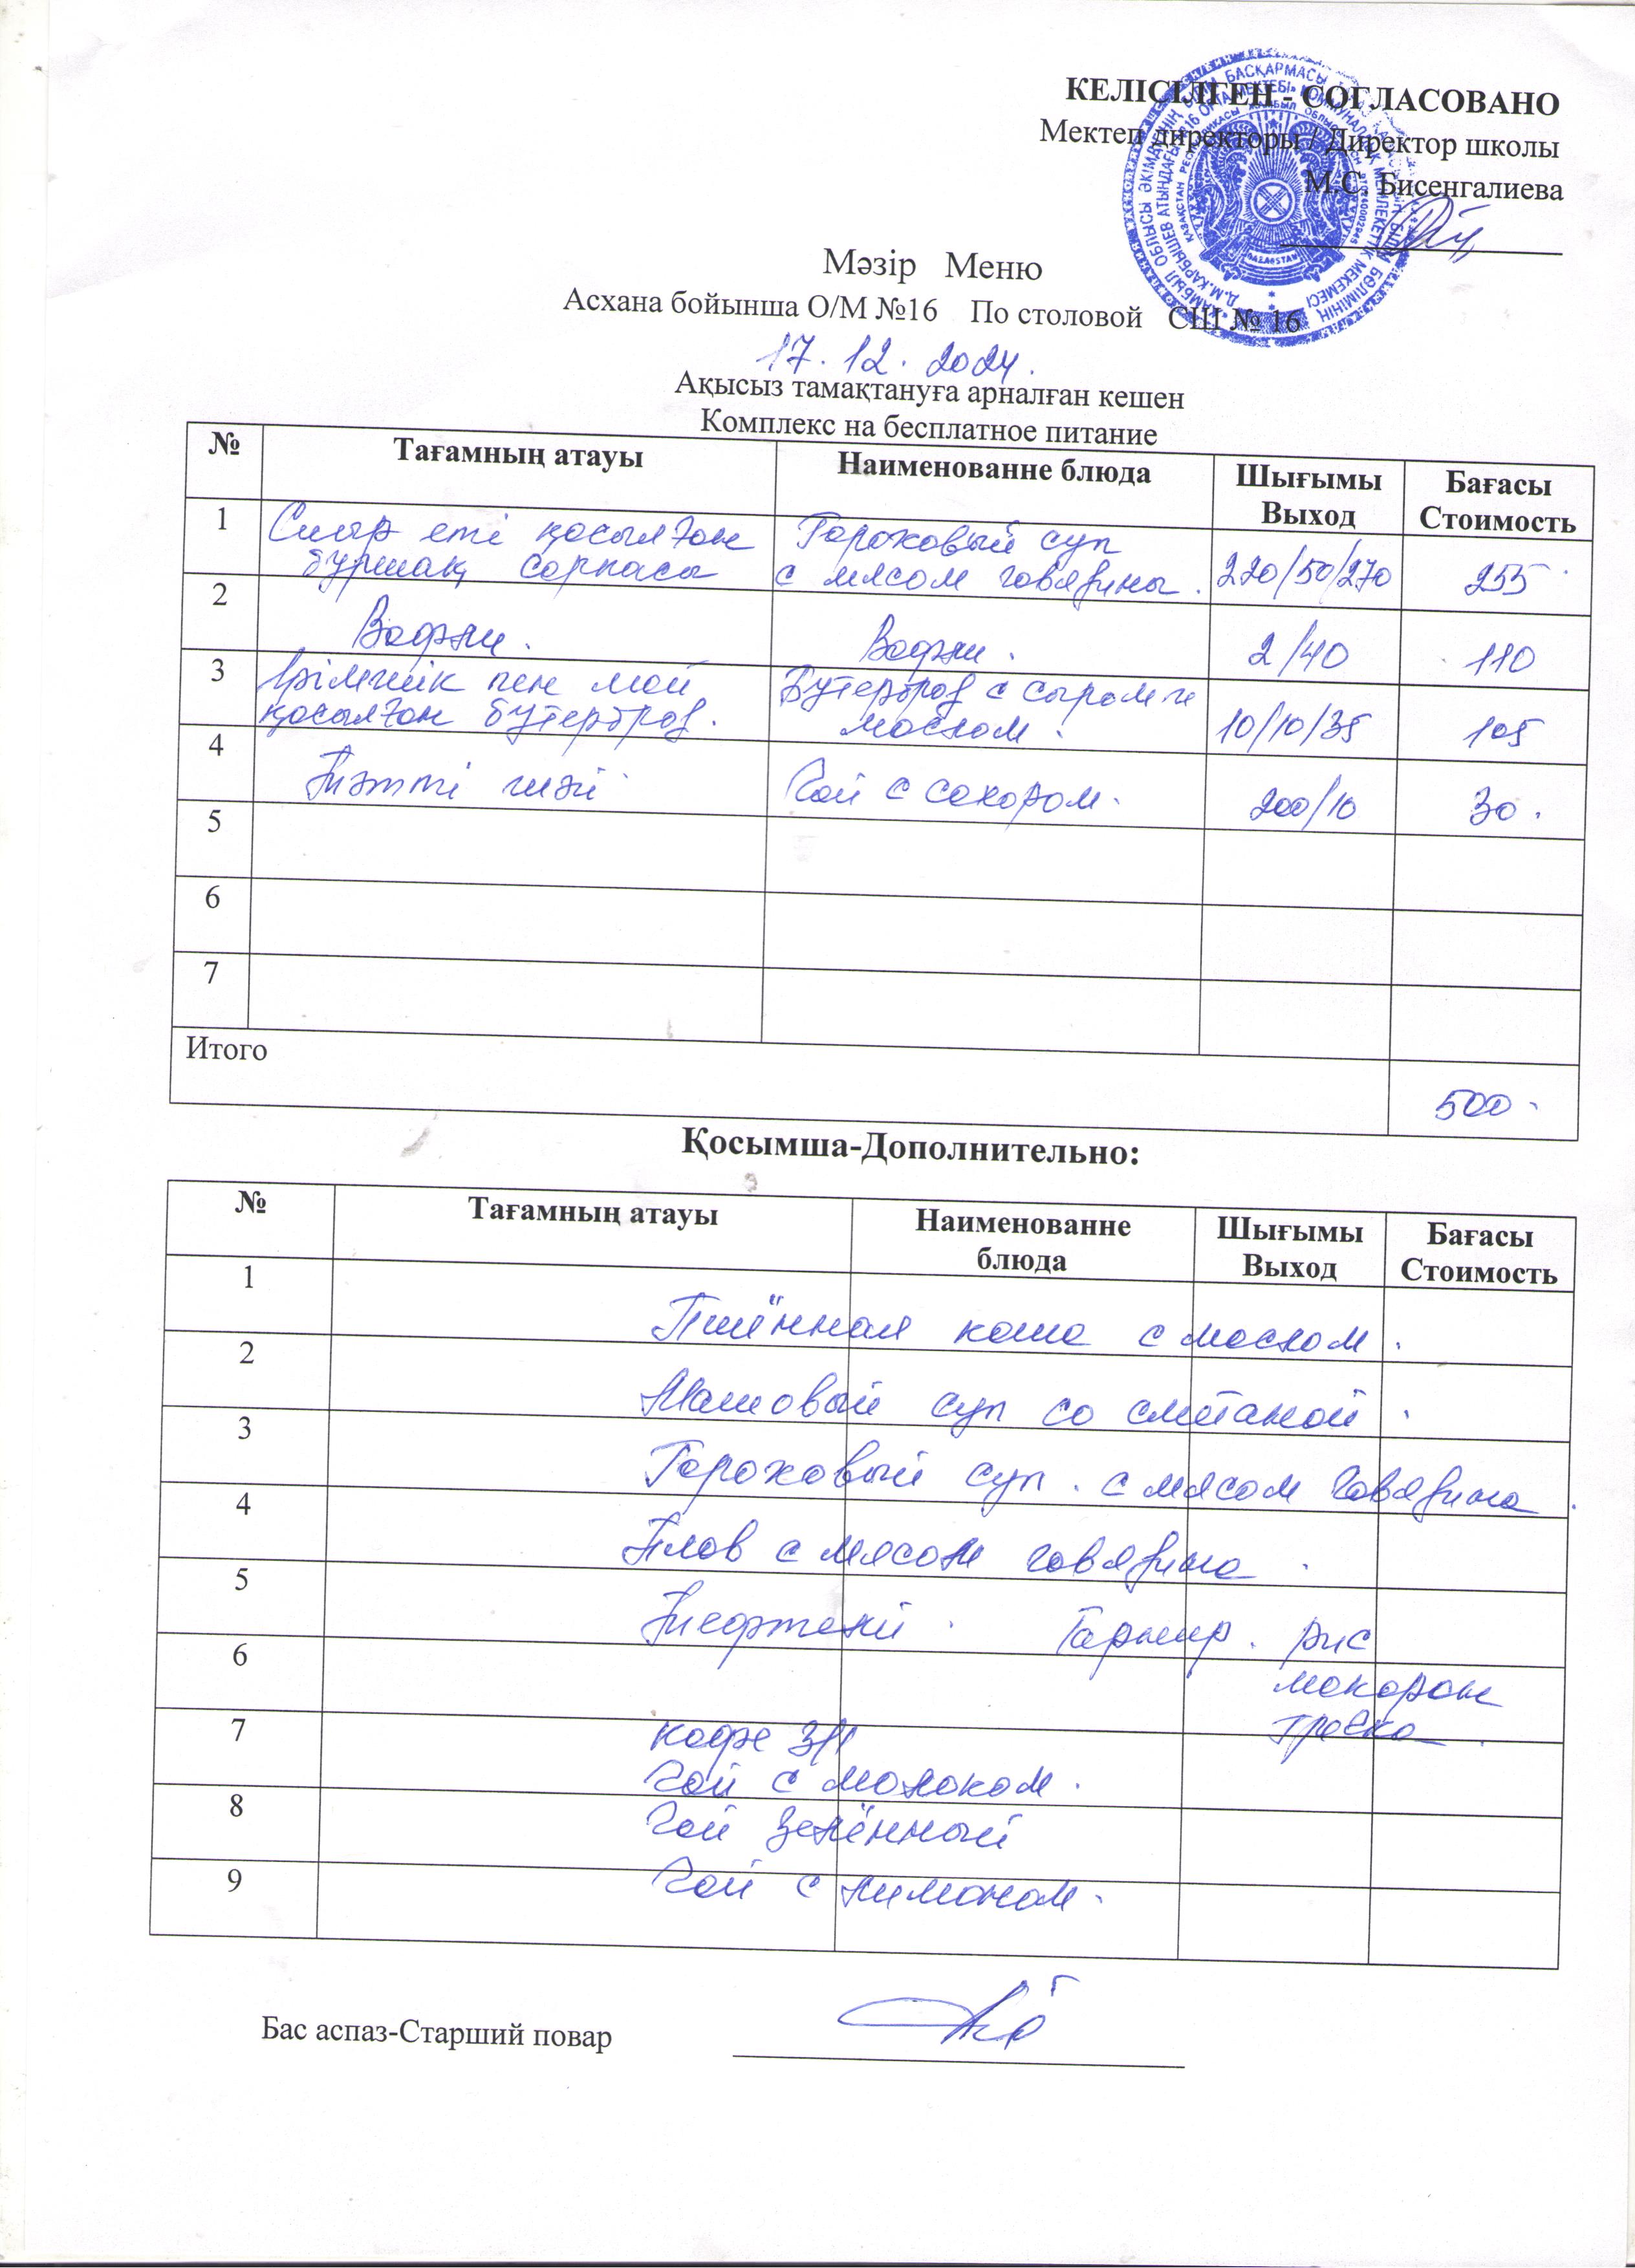 КЕЛІСІЛГЕН - СОГЛАСОВАНО
Мектеп директоры / Директор школы
М.С. Бисенгалиева
Мәзір Меню
Асхана бойынша О/М №16 По столовой СШ № 16
17.12.2024.
Ақысыз тамақтануға арналған кешен
Комплекс на бесплатное питание
№ Тағамның атауы Наименованне блюда Шығымы Выход Бағасы Стоимость
1 Сиыр еті қосылған бұршақ сорпасы Гороховый суп с мясом говядины. 220/50/270 255
2 Вафли. Вафли. 2/40 110
3 Ірімшік пен май қосылған бутерброд. Бутерброд с сыром и маслом. 10/10/35 105
4 Тәтті шәй Чай с сахаром. 200/10 30.
5
6
7
Итого 500.
Қосымша-Дополнительно:
№ Тағамның атауы Наименованне блюда Шығымы Выход Бағасы Стоимость
1 Пшённая каша с маслом.
2 Машовый суп со сметаной.
3 Гороховый суп. с мясом говядина.
4 Плов с мясом говядина.
5 Тефтели. Гарнир. рис
6 макарон
гречка.
7 кофе 3/1
Чай с молоком.
8 Чай зелённый
9 Чай с лимоном.
Бас аспаз-Старший повар